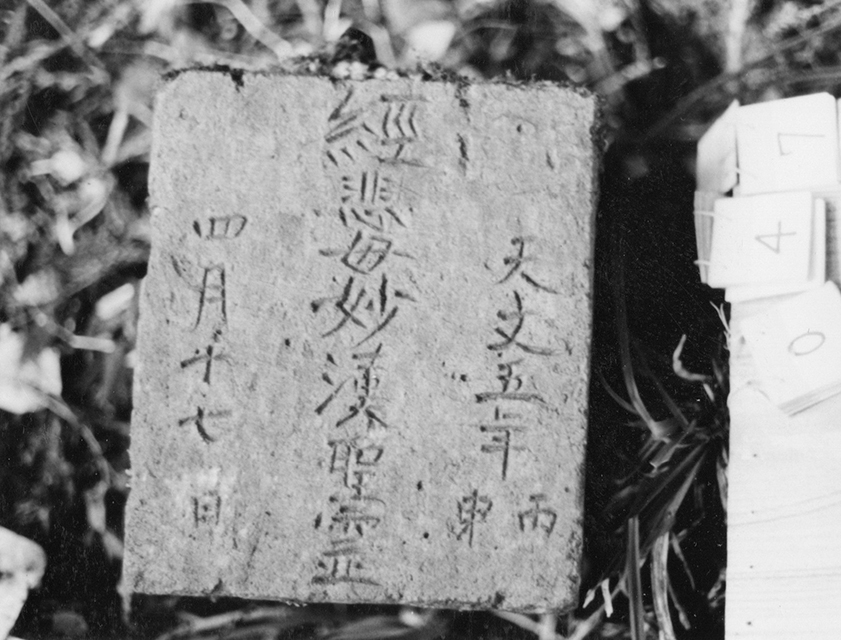 天文五年丙申
經悲母妙漢聖霊
四月十七日
7
4
0